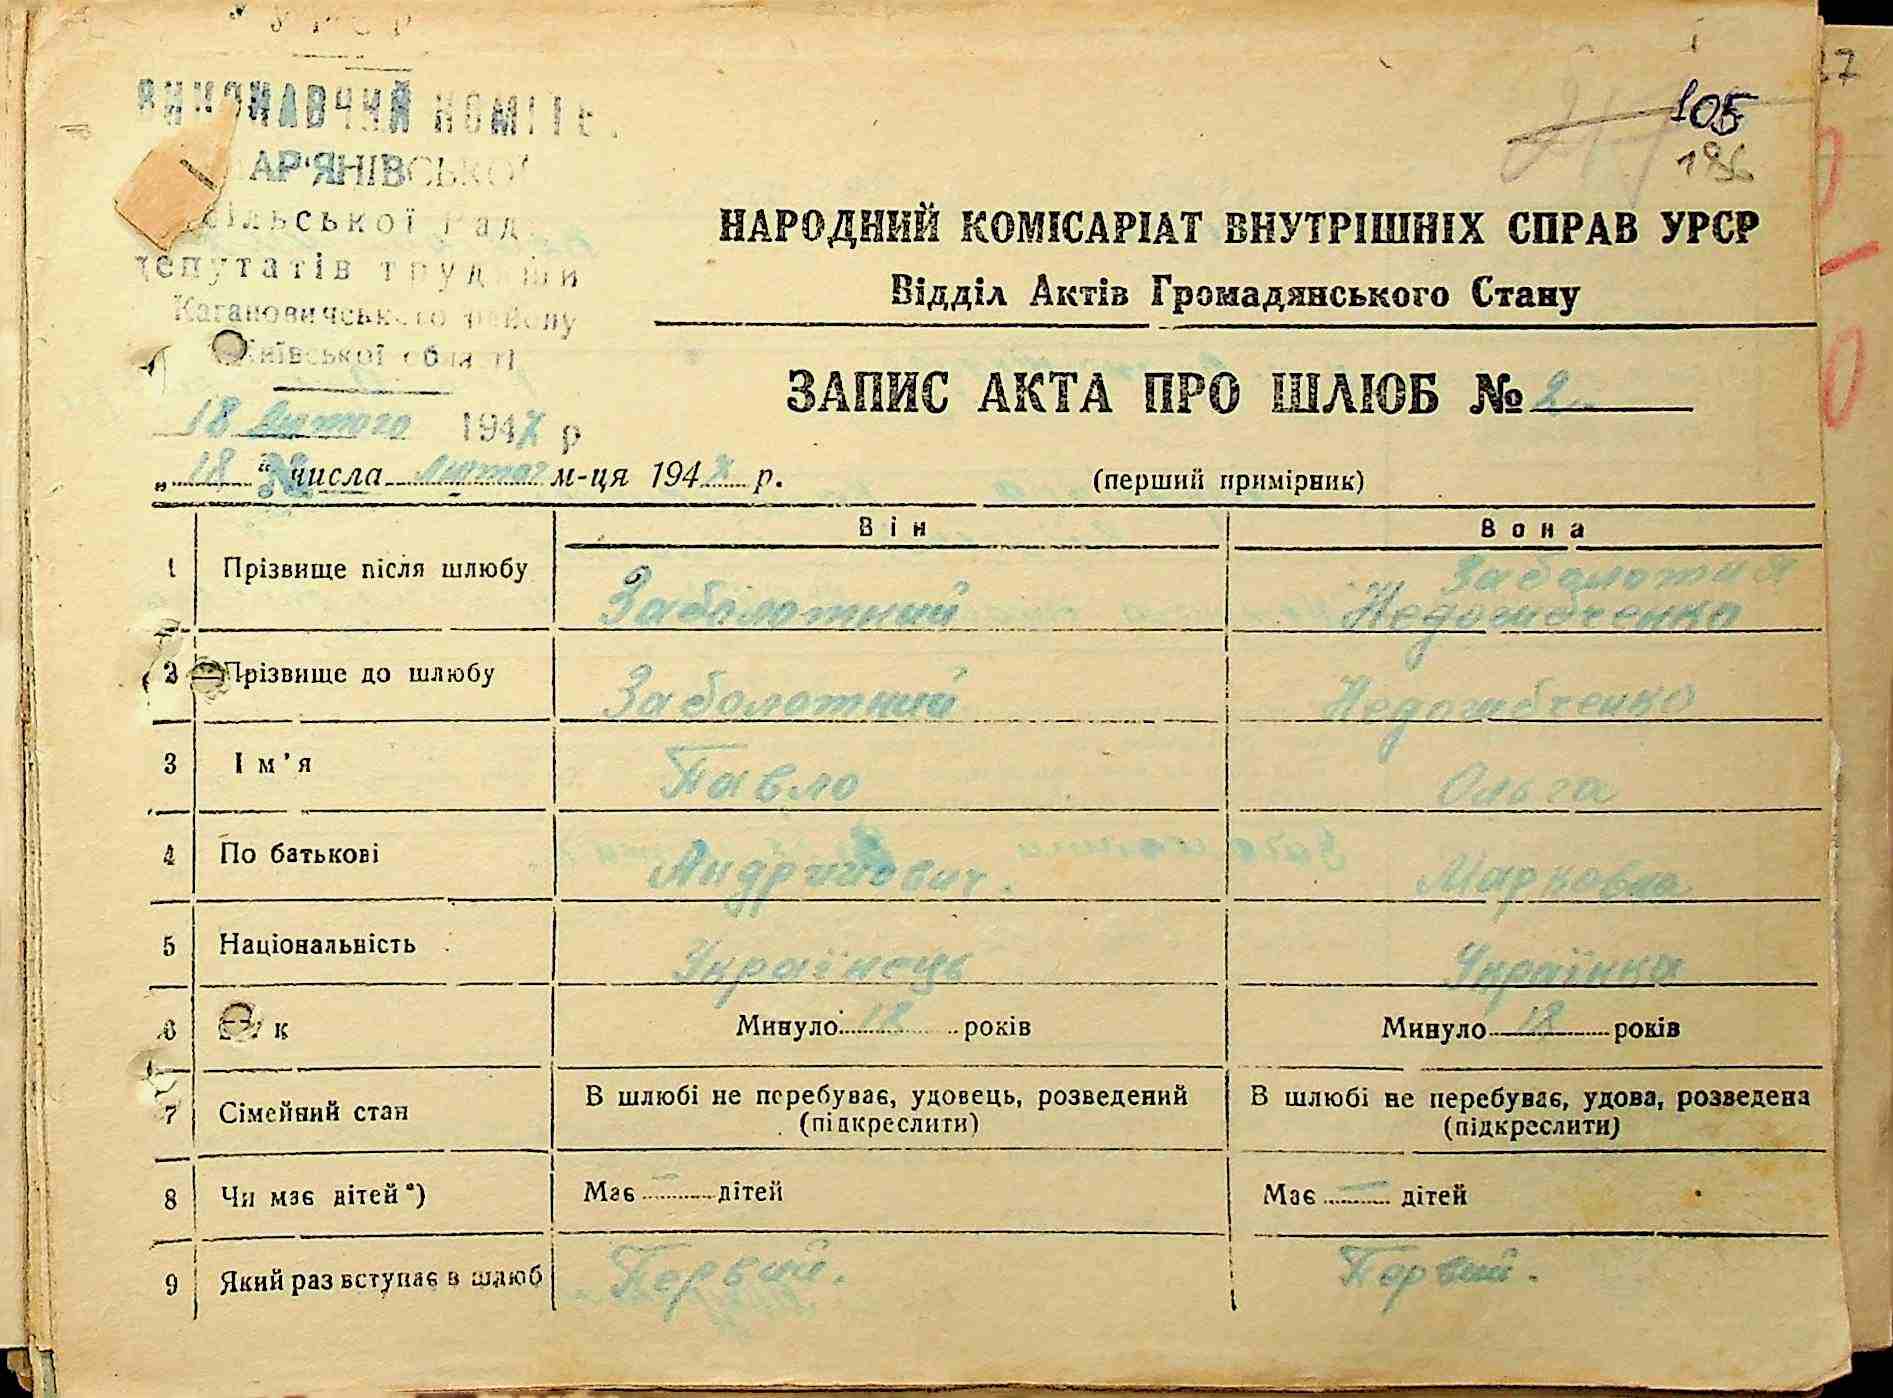 У Р С Р
ВИКОНАВЧИЙ КОМІТЕ
АР'ЯНІВСЬКОЇ
сільської Рад
депутатів трудящи
Кагановичського району
Київської області
18 Лютого 1947 р
№
27
105
186
НАРОДНИЙ КОМІСАРІАТ ВНУТРІШНІХ СПРАВ УРСР
Відділ Актів Громадянського Стану
ЗАПИС АКТА ПРО ШЛЮБ № 2
„ 18 " числа лютого м-ця 1947 р.
(перший примірник)
Він Вона
1 Прізвище після шлюбу Заболотний Заболотня Недошебченко
2 Прізвище до шлюбу Заболотний Недошебченко
3 Ім'я Павло Ольга
4 По батькові Андрийович. Марковна
5 Національність Українець Українка
6 к Минуло 18 років Минуло 18 років
7 Сімейний стан В шлюбі не перебуває, удовець, розведений (підкреслити) В шлюбі не перебуває, удова, розведена (підкреслити)
8 Чи має дітей*) Має — дітей Має — дітей
9 Який раз вступає в шлюб Первий. Первий.